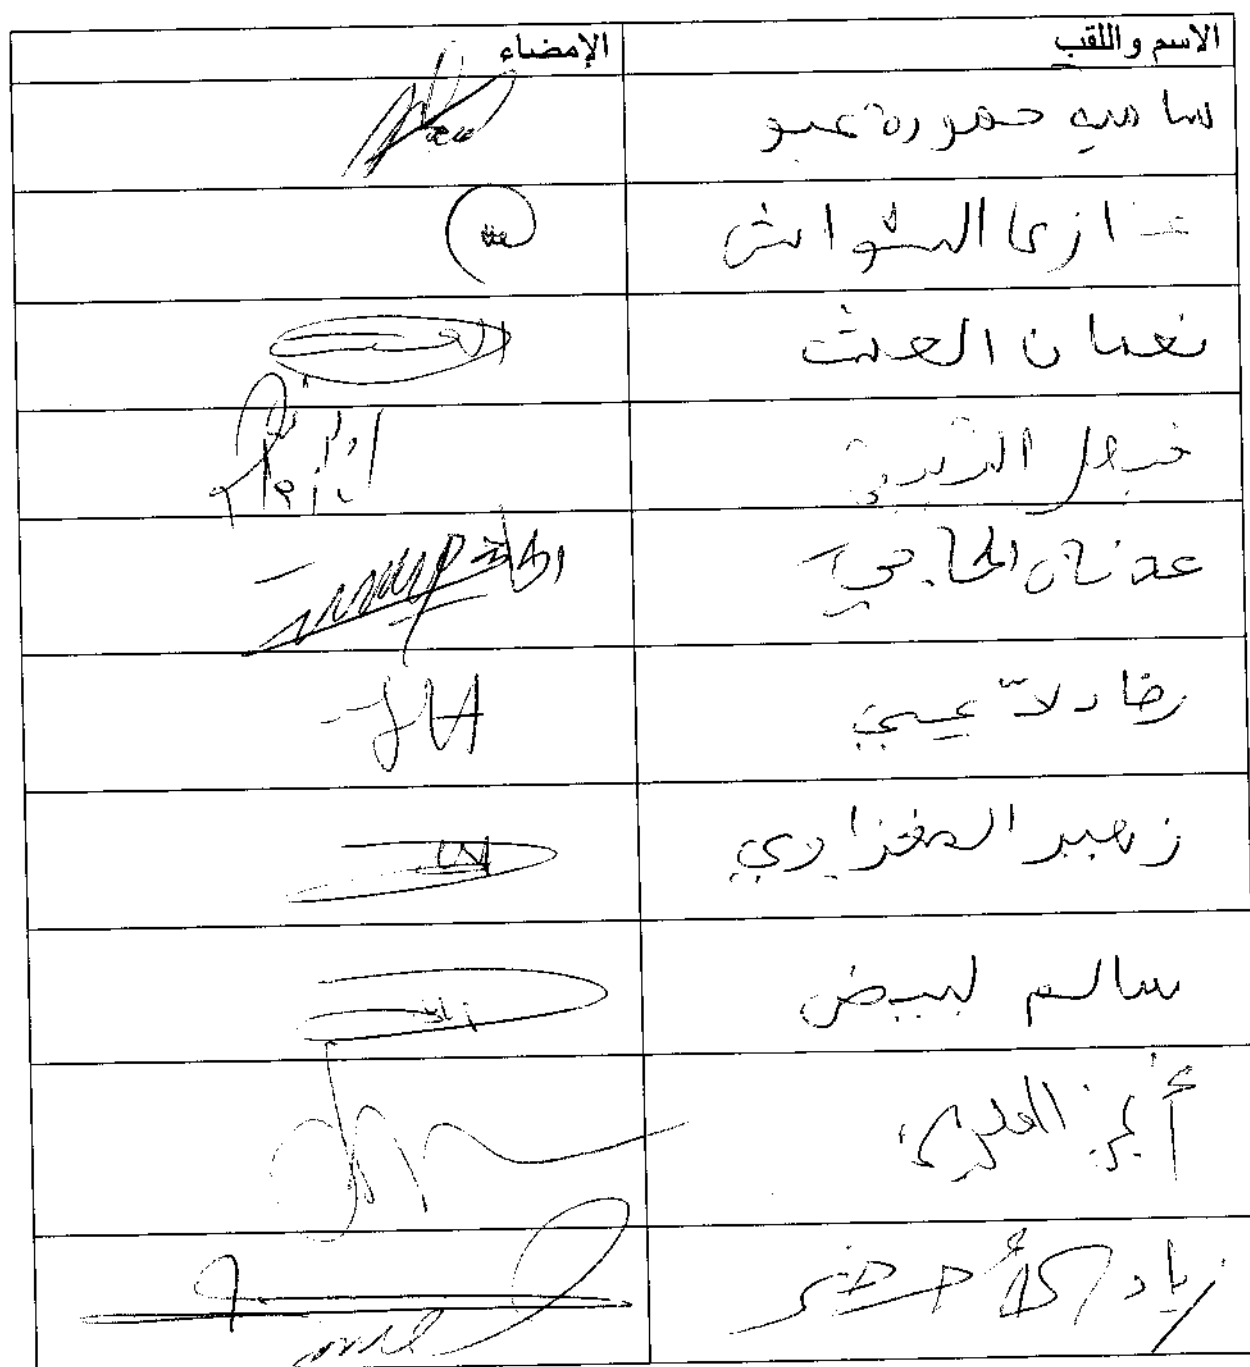 الاسم واللقب الإمضاء
سامية حمودة عبو
غازي الشواشي
نعمان العش
فيصل التبيني
عدنان الحاجي
رضا دلاعي
زهير المغزاوي
سالم لبيض
أيمن العلوي
زياد الأخضر